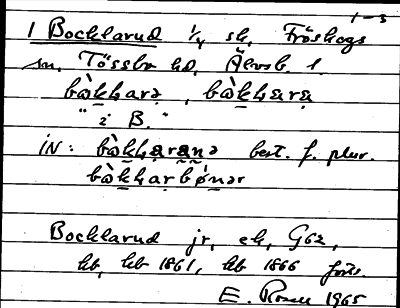 1-3
1 Bocklarud 1/4 sk, Fröskogs
sn, Tössbo hd, Älvsb. l.
bàkharə, bàkhara
" i B. "
iN: bàkharanə best. f. plur.
bàkharbǿnər
Bocklarud jr, ek, G62,
kb, hb 1861, hb 1866 förs.
E. Rosen 1965